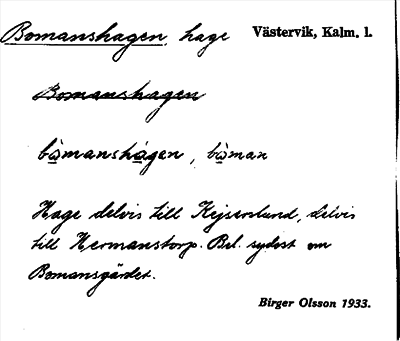 Bomanshagen, hage Västervik, Kalm. l.
Bomanshagen
bòmanshágen, bòman
Hage delvis till Kejserslund, delvis
till Hermanstorp. Bel. sydost om
Bomansgärdet.
Birger Olsson 1933.